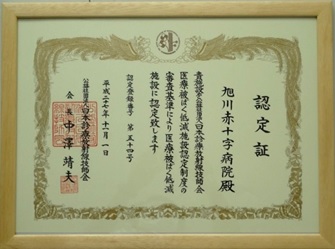 認定証
旭川赤十字病院殿
貴施設を公益社団法人日本診療放射線技師会
医療被ばく低減施設認定制度の
審査基準により医療被ばく低減
施設に認定致します
認定登録番号 第五十四号
平成二十七年十一月一日
公益社団法人日本診療放射線技師会
会長 中澤靖夫